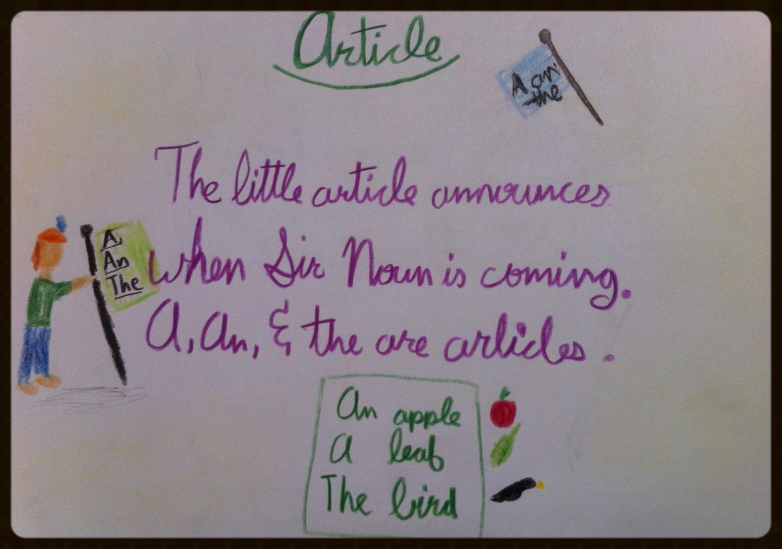 Article
A an
the
The little article announces
A
An
The
when Sir Noun is coming.
A, An, & the are articles.
An apple
A leaf
The bird